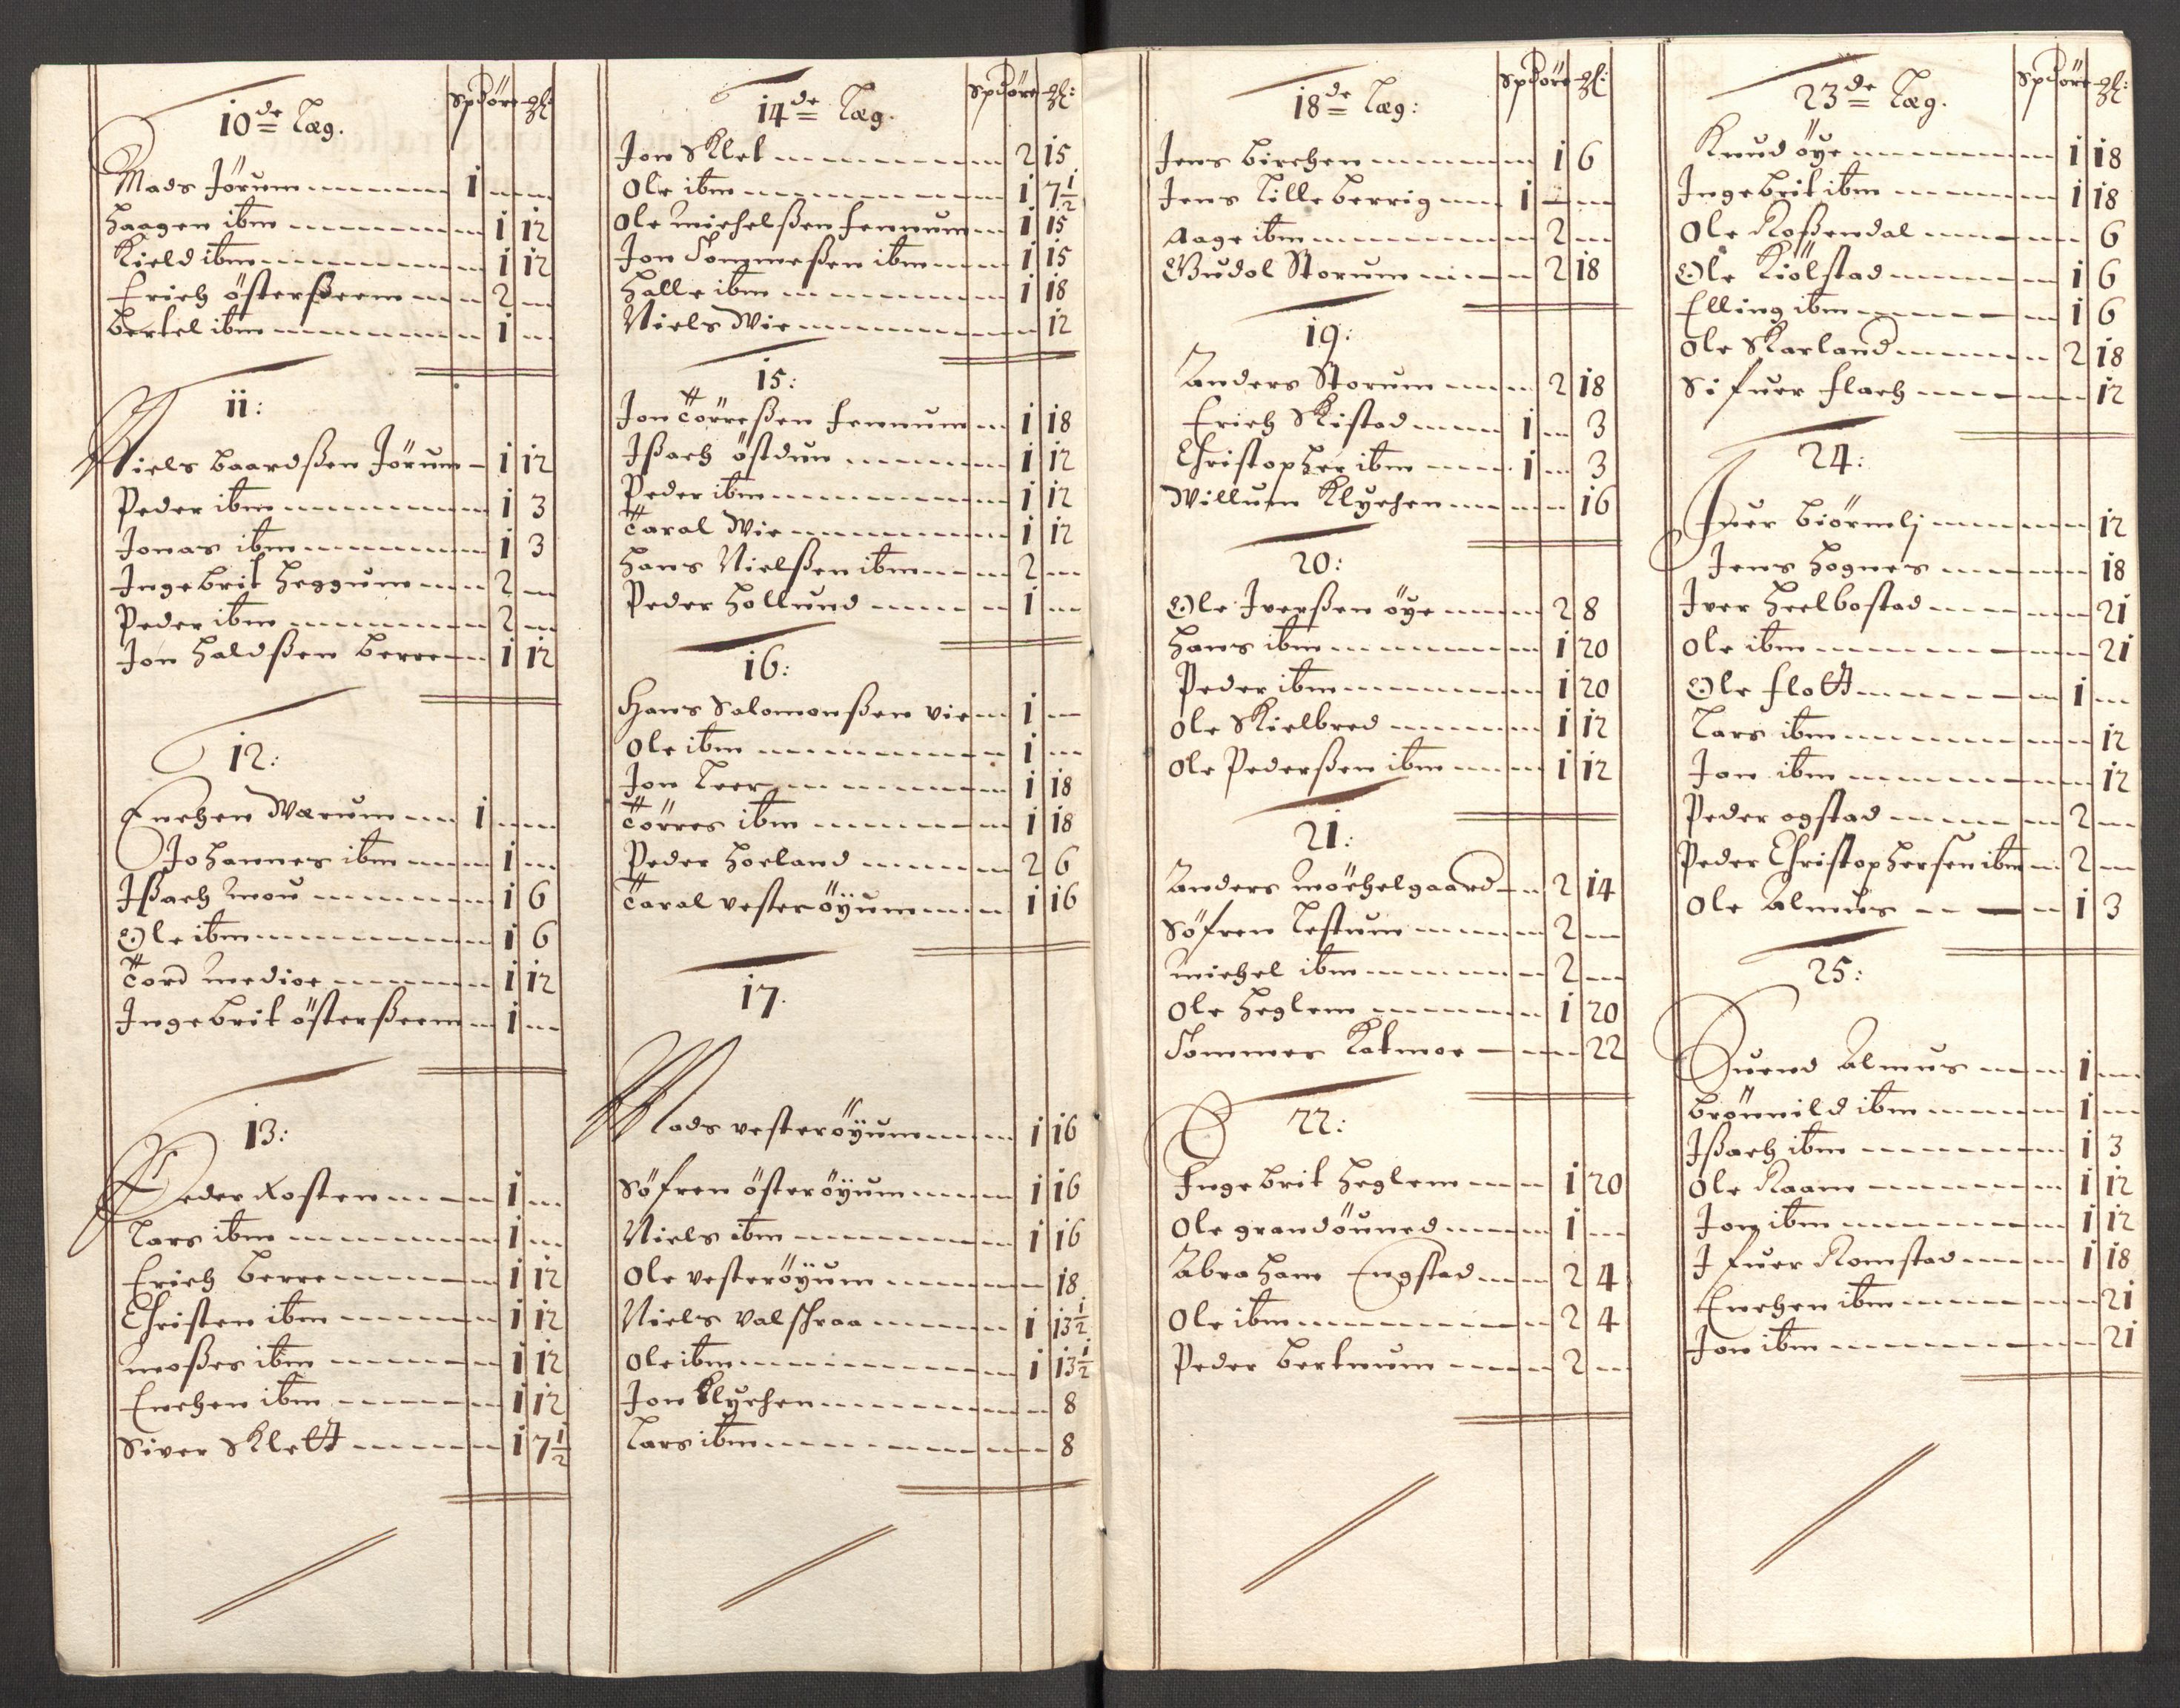 10de Læg. Spd öre gl:
Mads Jörum 1
Haagen ibm 1 12
Kield ibm 1 12
Erich österßeem 2
Bertel ibm 1
11:
Niels Baardßen Jörum 1 12
Peder ibm 1 3
Jonas ibm 1 3
Ingebrit Heggum 2
Peder ibm 2
Jon Haldßen Berre 1 12
12:
Enchen Wærum 1
Johannes ibm 1
Ißach mou 1 6
Ole ibm 1 6
Tord medioe 1 12
Ingebrit österßeem 1
13:
Peder Rosten 1
Lars ibm 1
Erich Berre 1 12
Christen ibm 1 12
moßes ibm 1 12
Enchen ibm 1 12
Siver Sklett 1 7½
14de Læg. Spd öre gl:
Jon Sklet 2 15
Ole ibm 1 7½
Ole michelßen fennum 1 15
Jon Sommeßen ibm 1 15
Halle ibm 1 18
Niels Wie 12
15:
Jon Törreßen fennum 1 18
Ißach östdun 1 12
Peder ibm 1 12
Taral Wie 1 12
Hans Nielßen ibm 2
Peder Hollund 1
16:
Hans Salomonßen vie 1
Ole ibm 1
Jon Leer 1 18
Törres ibm 1 18
Peder Horland 2 6
Taral vesteröyum 1 16
17.
Mads vesteröyum 1 16
Söfren österöyum 1 16
Niels ibm 1 16
Ole vesteröyum 18
Niels valschraa 1 13½
Ole ibm 1 13½
Jon Klychen 8
Lars ibm 8
18de Læg: Spd öre gl:
Jens Birchen 1 6
Jens Lilleberrig 1
Aage ibm 2
Gudol Storum 2 18
19:
Anders Storum 2 18
Erich Skistad 1 3
Christopher ibm 1 3
Willum Klychen 16
20:
Ole Iverßen öye 2 8
Hans ibm 1 20
Peder ibm 1 20
Ole Skielbred 1 12
Ole Pederßen ibm 1 12
21:
Anders möchelgaard 2 14
Söfren Lestum 2
michel ibm 2
Ole Heglem 1 20
Sommer Katmoe 22
22:
Ingebrit Heglem 1 20
Ole grandöuned 1
Abraham Engstad 2 4
Ole ibm 2 4
Peder Bertnum 2
23de Læg. Spd öre gl:
Knud öye 1 18
Ingebrit ibm 1 18
Ole Roßendal 6
Ole Kiölstad 1 6
Elling ibm 1 6
Ole Skarland 2 18
Sifuer flach 12
24:
Iver Biörnli 12
Jens Hognes 18
Iver Heelbostad 21
Ole ibm 21
Ole flott 1
Lars ibm 12
Jon ibm 12
Peder ogstad 2
Peder Christophersen ibm 2
Ole Almus 1 3
25:
Suend Almus 1
Brönnild ibm 1
Ißach ibm 1 3
Ole Raam 1 12
Jon ibm 1 12
Ifuer Romstad 1 18
Enchen ibm 21
Jon ibm 21